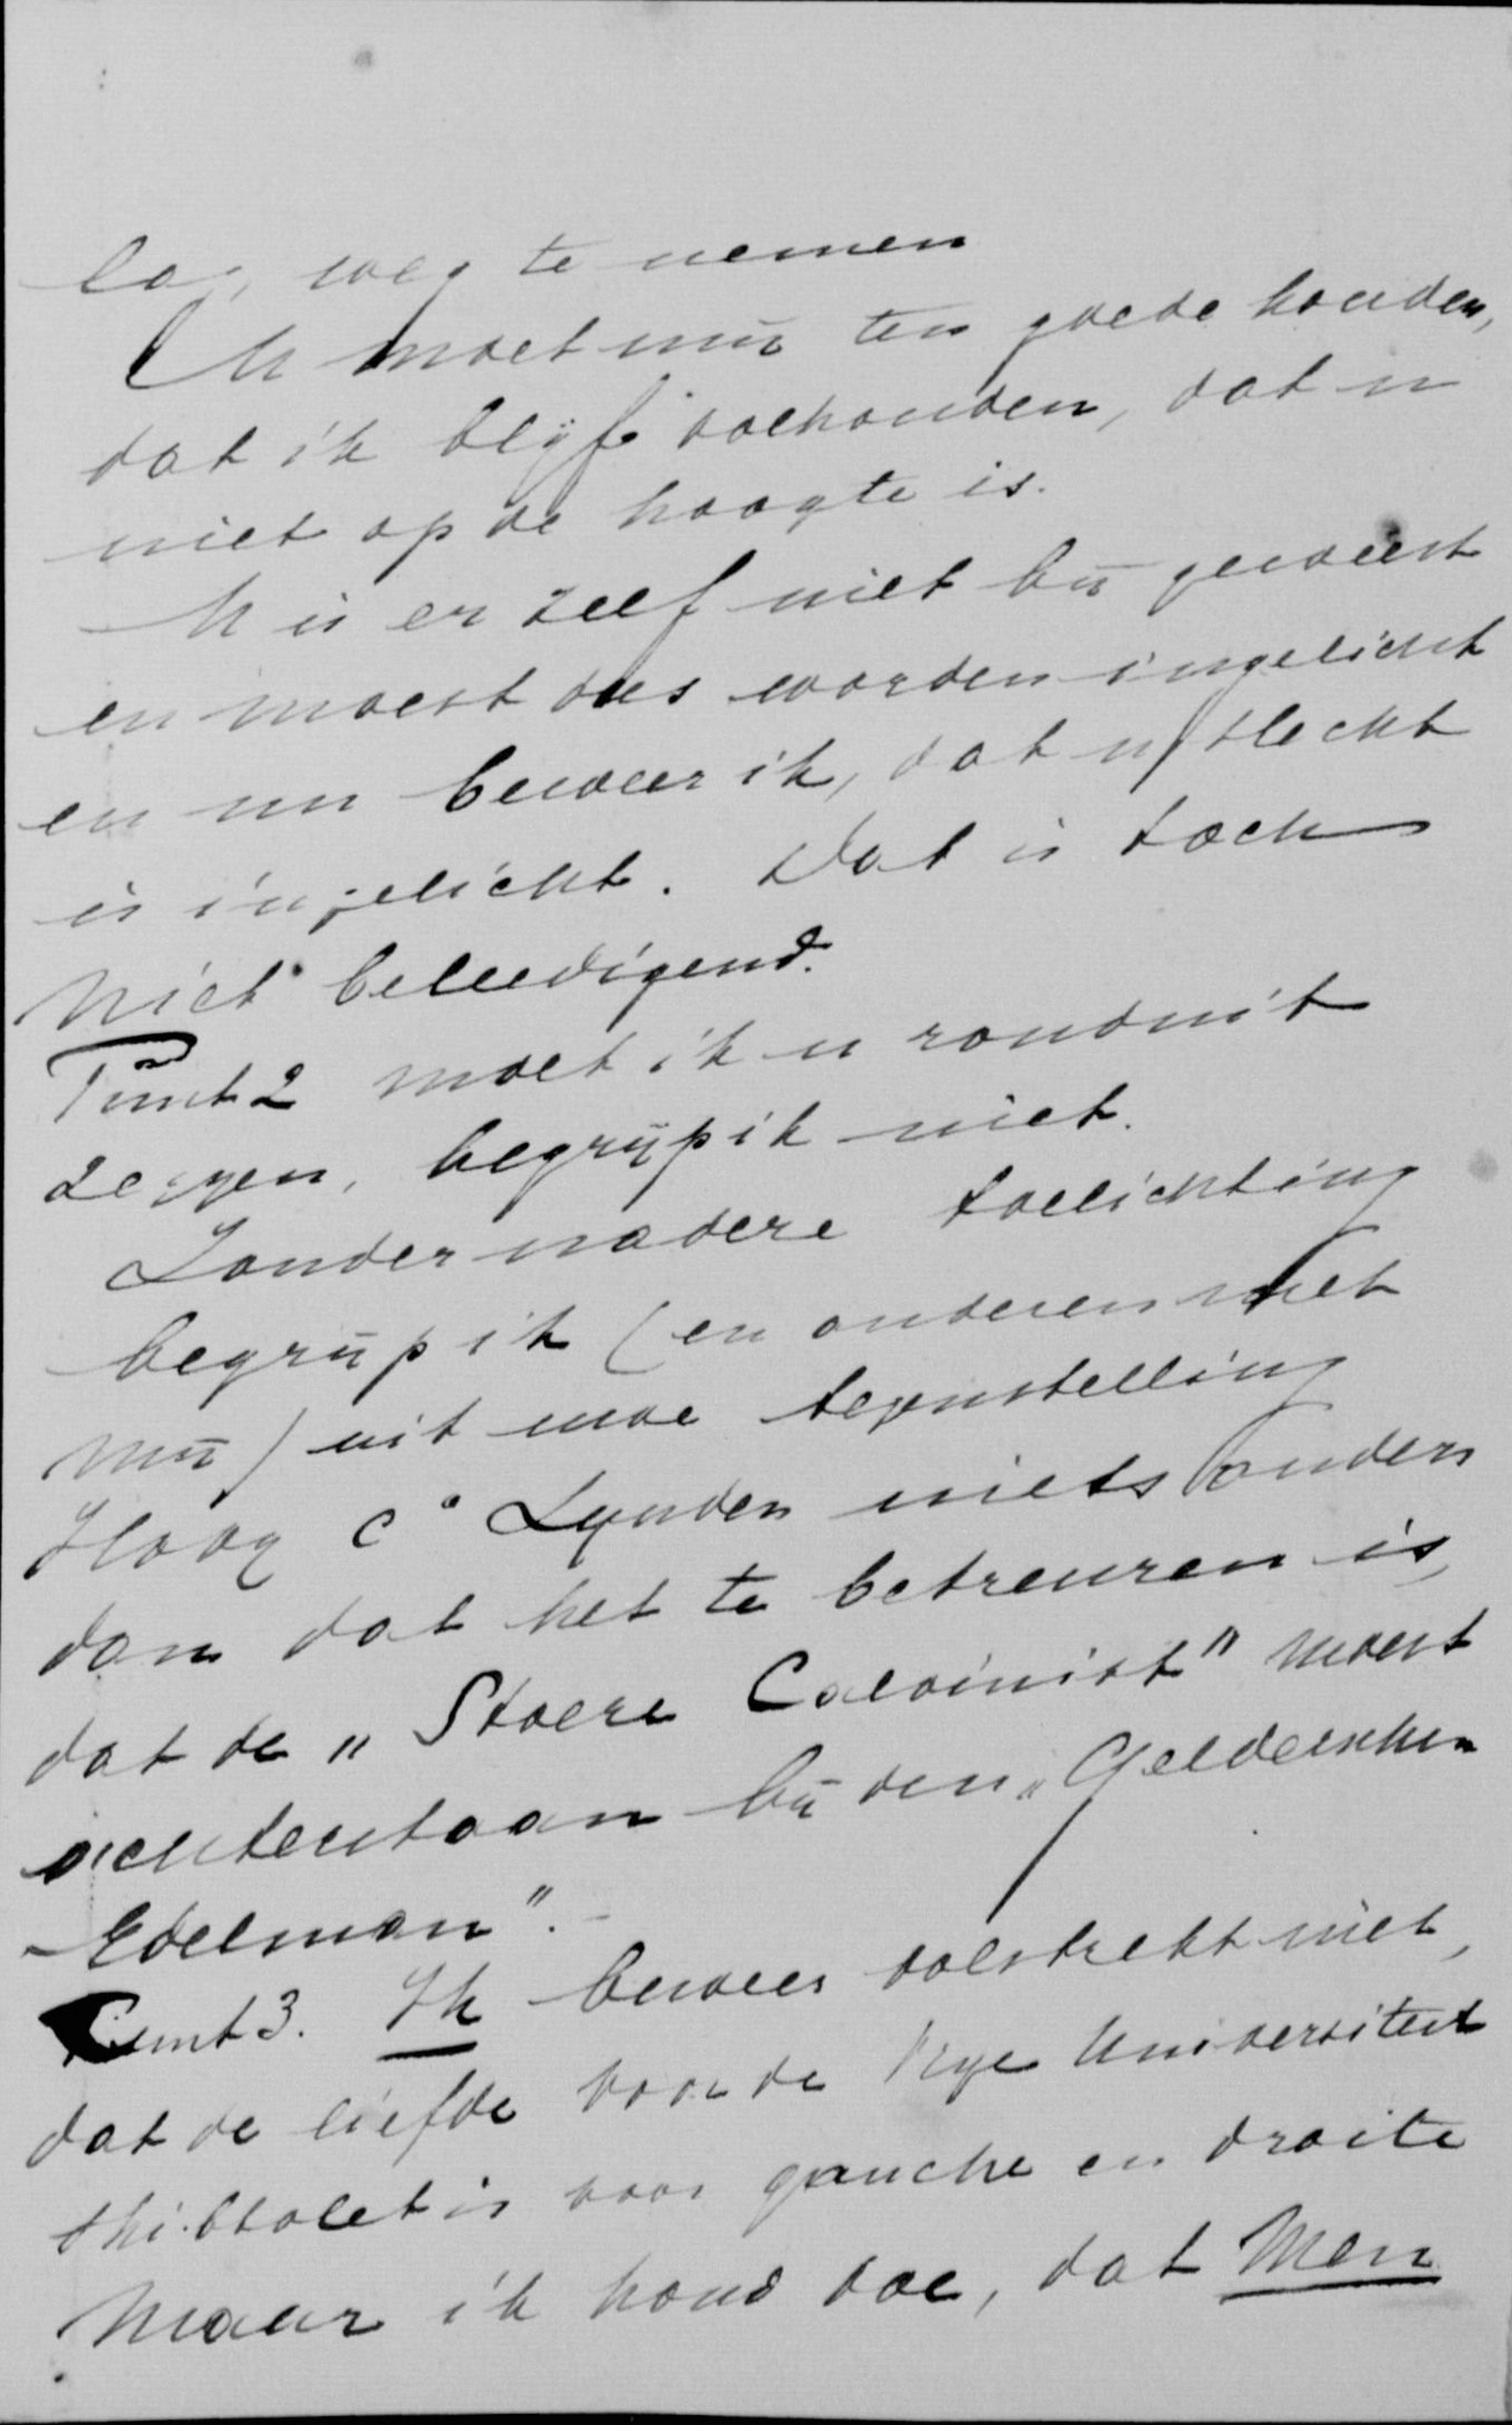 lag, weg te nemen
U moet mij ten goede houden,
dat ik blijf volhouden, dat u
niet op de hoogte is.
U is er zelf niet bij geweest
en moest dus worden ingelicht
en nu beweer ik, dat u slecht
is ingelicht. Dat is toch
niet beleedigend.
Punt 2 moet ik u ronduit
zeggen, begrijp ik niet.
Zonder nadere toelichting
begrijp ik (en anderen met
mij) uit uwe tegenstelling
Hoog c° Lynden niets anders
dan dat het te betreuren is,
dat de „Stoere Calvinist" moest
achterstaan bij den „Gelderschen
Edelman".-
Punt 3. Ik beweer volstrekt niet,
dat de liefde voor de Vrije Universiteit
shibbolet is voor gauche en droite
maar ik houd vol, dat Men